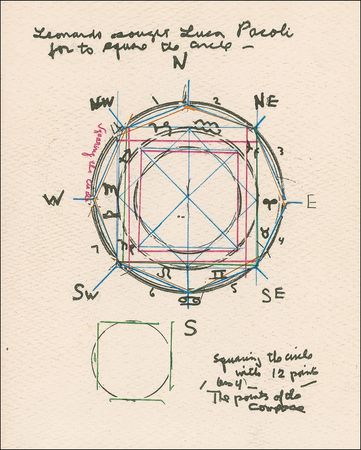 Leonardo sought Luca Pacoli
for to square the circle –
N
NW
NE
1
2
3
squaring the circle
W
E
4
7
♌
♊
6
5
SW
SE
♋
S
squaring the circle
with 12 points
The points of the
compass